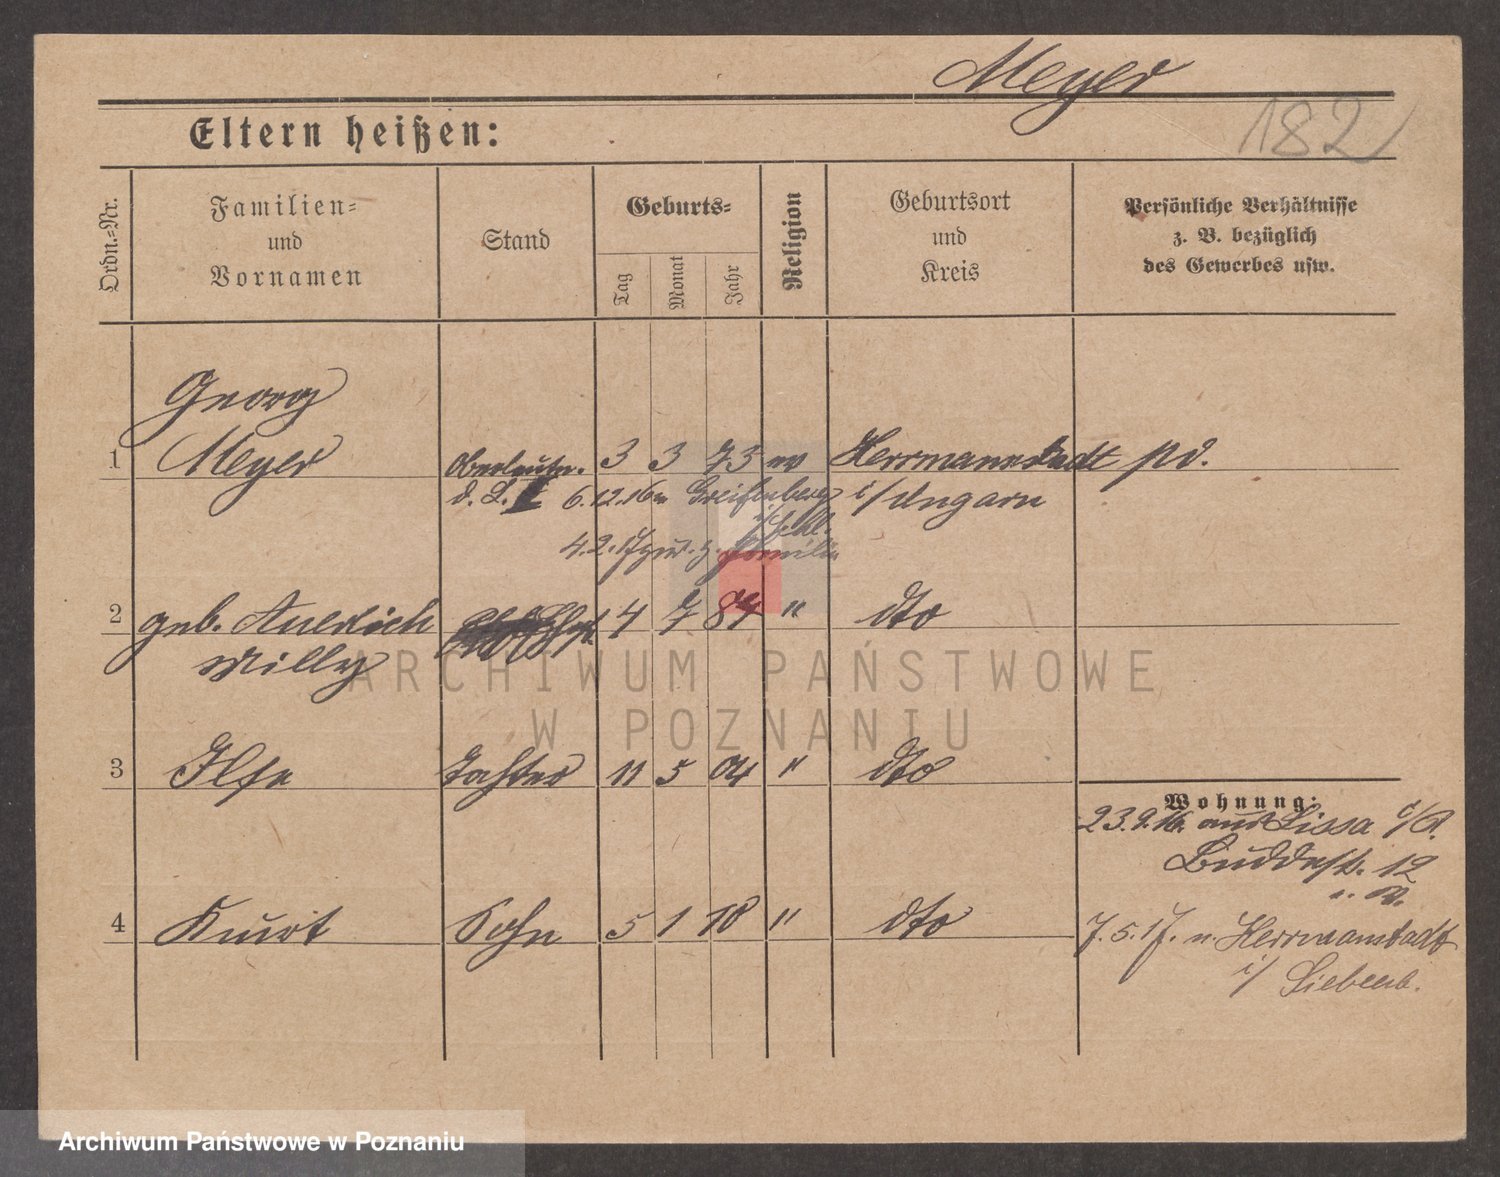 Meyer
182
Eltern heißen:
Ordn.=Nr.
Familien=
und
Vornamen
Stand
Geburts=
Tag
Monat
Jahr
Religion
Geburtsort
und
Kreis
Persönliche Verhältnisse
z. B. bezüglich
des Gewerbes usw.
Georg
1 Meyer Oberleutn. 3 3 73 ev Herrmannstadt
d. L. I 6.12.16 n Greifenberg i/Ungarn
i/Schl.
4.2.17 zur. z. Familie
2 geb. Auldich 4 7 84 " dto
Willy
3 Ilse Tochter 11 5 04 " dto
Wohnung:
23.9.16. aus Lissa i/P.
Buddestr. 12
4 Kurt Sohn 5 1 10 " dto
7.5.17. n. Herrmanstadt
i/ Siebenb.
ARCHIWUM PAŃSTWOWE
W POZNANIU
Archiwum Państwowe w Poznaniu